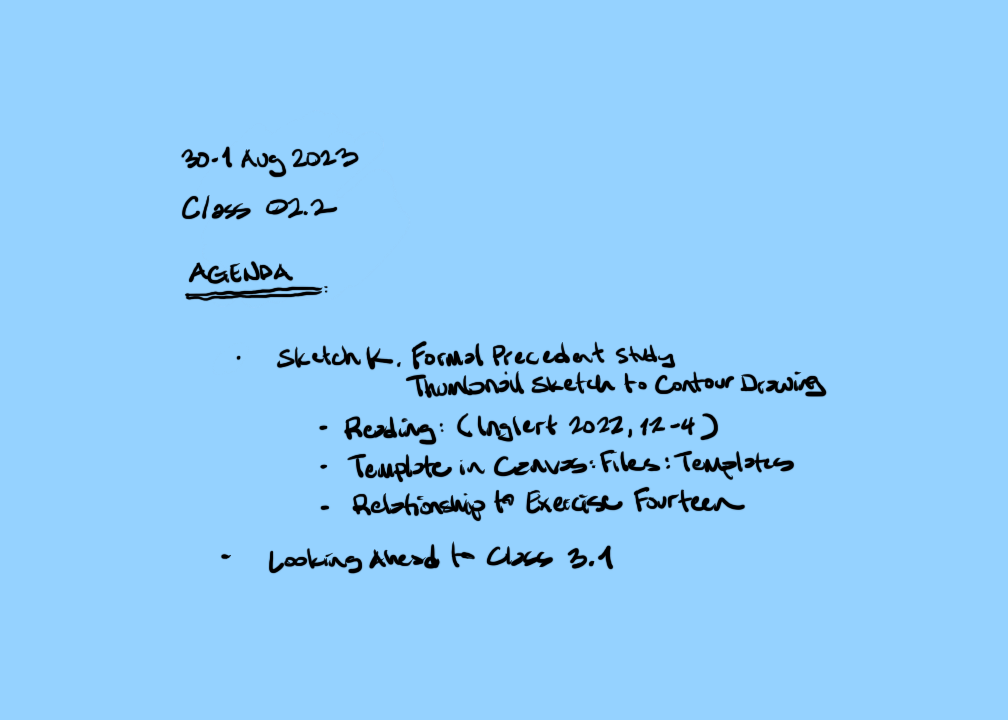 30-1 Aug 2023
Class 02.2
AGENDA
· Sketch K. Formal Precedent Study
Thumbnail Sketch to Contour Drawing
- Reading: (Inglert 2022, 12-4)
- Template in Canvas: Files: Templates
- Relationship to Exercise Fourteen
- Looking Ahead to Class 3.1